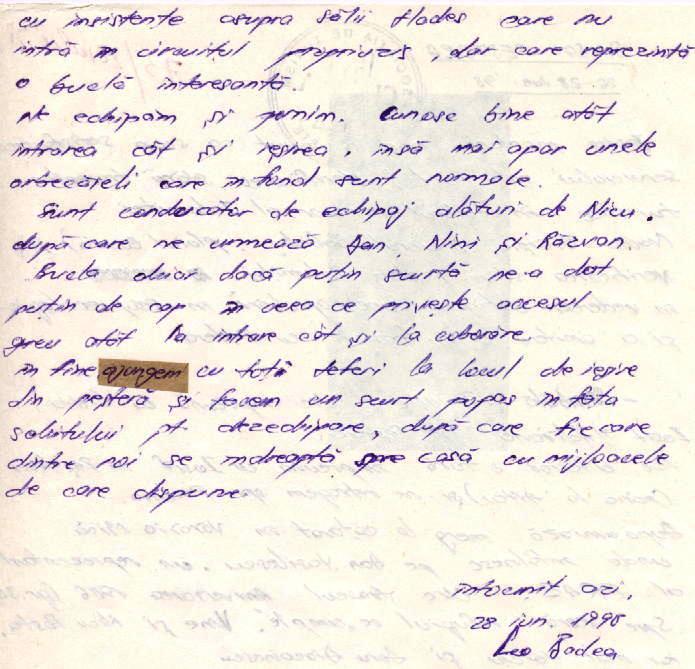 cu insistențe asupra sălii Hades care nu
intră în circuitul propriuzis, dar care reprezintă
o buclă interesantă
Ne echipăm și pornim. Cunosc bine atât
intrarea cât și ieșirea, însă mai apar unele
orbecăieli care în fond sunt normale.
Sunt conducător de echipaj alături de Nicu,
după care ne urmează Dan, Nini și Răzvan.
Bucla chiar dacă puțin scurtă ne-a dat
puțin de cap în ceea ce privește accesul
greu atât la intrare cât și la coborâre
în fine ajungem cu toții teferi la locul de ieșire
din peșteră și facem un scurt popas în fața
solicitului pt. dezechipare, după care fiecare
dintre noi se îndreaptă spre casă cu mijloacele
de care dispune
întocmit azi,
28 iun. 1998
Leo Badea